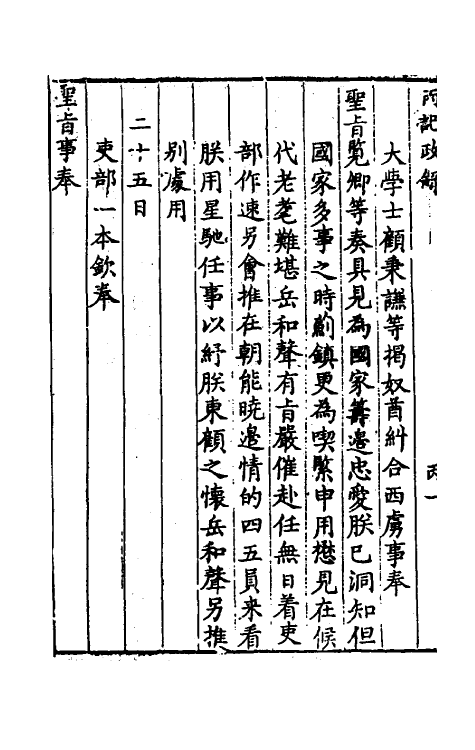 大學士顧秉謙等揭奴酋糾合西虜事奉
聖旨覽卿等奏具見為國家籌邊忠愛朕已洞知但
國家多事之時薊鎮更為喫緊申用懋見在候
代老耄難堪岳和聲有旨嚴催赴任無日着吏
部作速另會推在朝能曉邊情的四五員來看
朕用星馳任事以紓朕東顧之懷岳和聲另推
別處用
二十五日
吏部一本欽奉
聖旨事奉